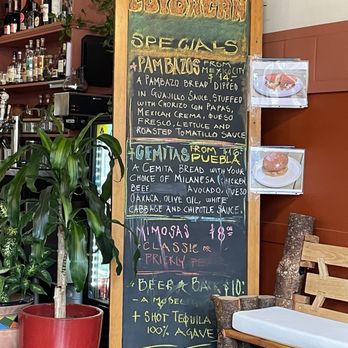 COYOACAN
SPECIALS
+PAMBAZOS FROM MEXICO CITY
$14.
A PAMBAZO BREAD DIPPED
IN GUAJILLO SAUCE, STUFFED
WITH CHORIZO CON PAPAS,
MEXICAN CREMA, QUESO
FRESCO, LETTUCE AND
ROASTED TOMATILLO SAUCE
+CEMITAS FROM PUEBLA
A CEMITA BREAD WITH YOUR
CHOICE OF MILANESA (CHICKEN
BEEF AVOCADO, QUESO
OAXACA, OLIVE OIL, WHITE
CABBAGE AND CHIPOTLE SAUCE.
MIMOSAS $8.00
CLASSIC OR
PRICKLY PE
BEER & BA $10.
- A MODEL
+ SHOT TEQUILA
100% AGAVE